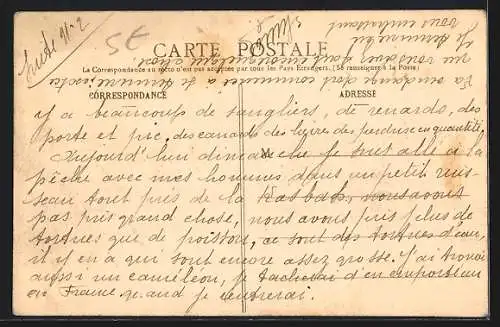 Suite n°2
57
CARTE POSTALE
La Correspondance au recto n'est pas acceptée par tous les Pays Etrangers. (Se renseigner à la Poste)
CORRESPONDANCE
ADRESSE
y a beaucoup de sangliers, de renards, des
porte et pic, des canards des lièvres des perdrise en quantitée,
Aujourd'hui dimanche je suis allé a la
pêche avec mes hommes dans un petit ruis-
seau tout près de la Kasbah, nous avons
pas près grand chose, nous avons près plus de
tortues que de poisson, ce sont des tortues d'eau,
il y en a qui sont encore assez grosse. J'ai trouvé
aussi un caméléon, je tacherai d'en emporter un
en France quand je rentrerai.
La vendange doit commencer a se
au
Je
vous embrassant